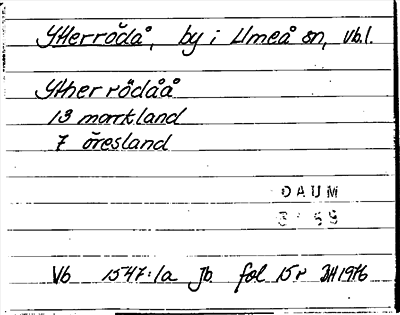 Ytterrödå, by i Umeå sn, Vb.l.
Yther rödåå
13 markland
7 öresland
DAUM
Vb 1547:1a Jb. fol 15r DH1976